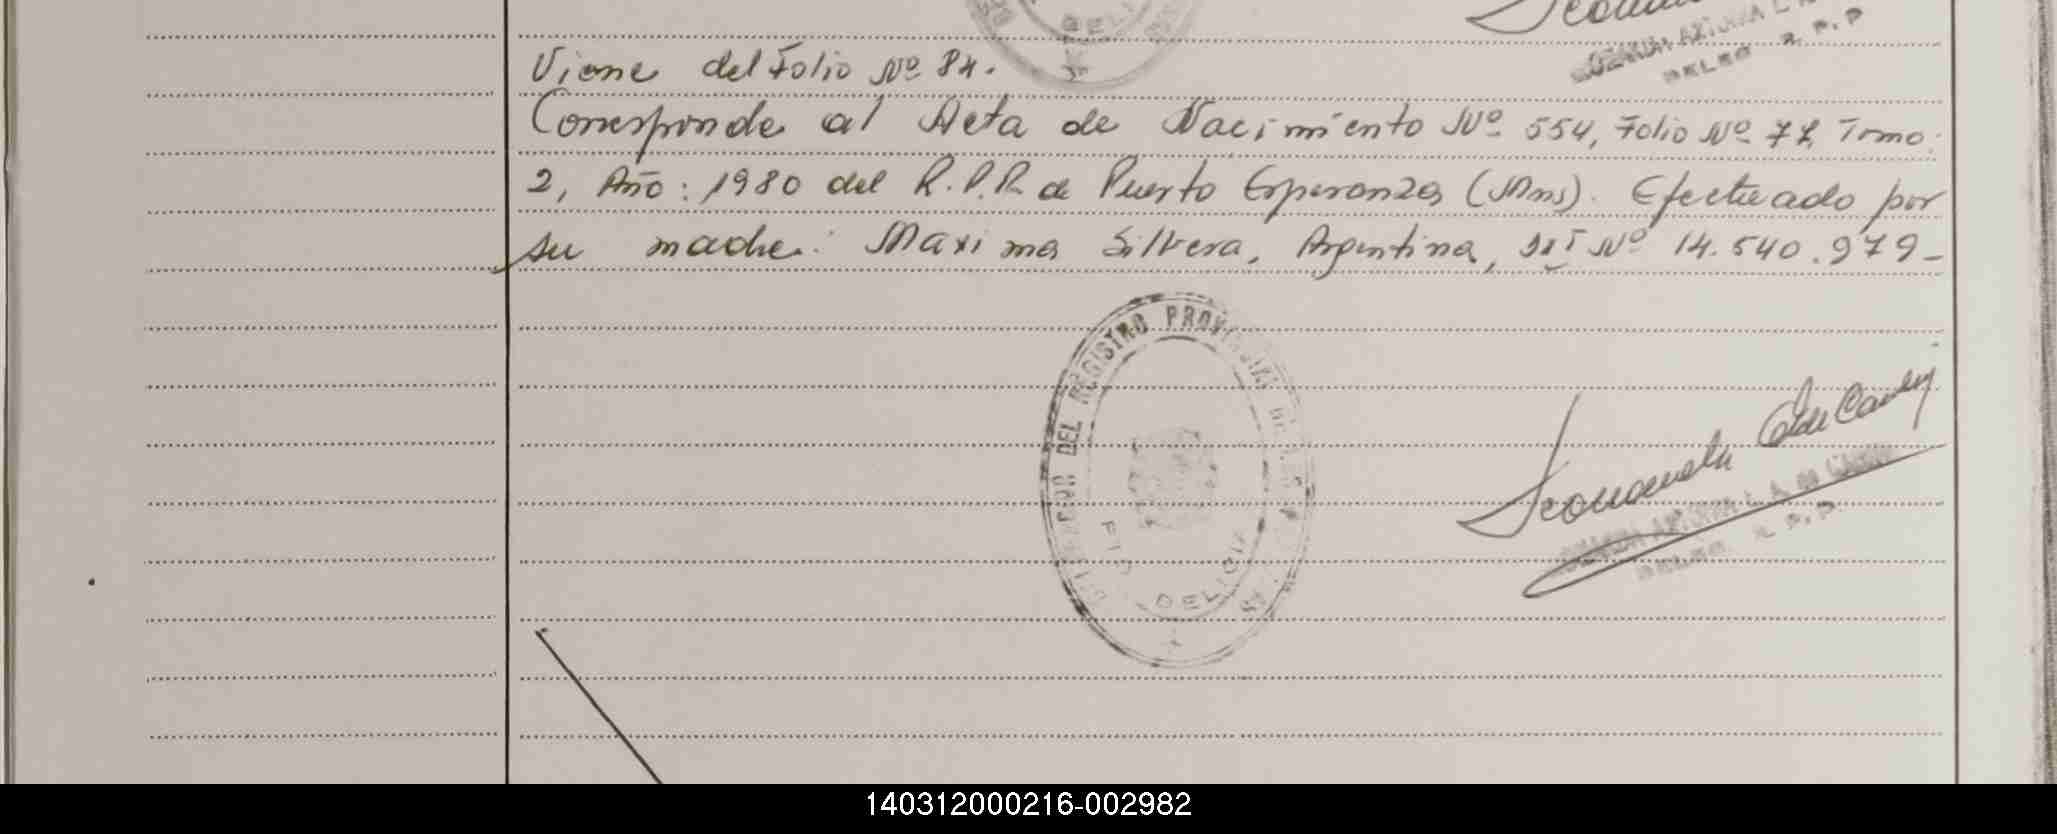 Viene del Folio Nº 84.
Corresponde al Acta de Nacimiento Nº 554, Folio Nº 77, Tomo
2, Año: 1980 del R.P.P. de Puerto Esperanza (Mns). Efectuado por
su madre: Maxima Silvera, Argentina, Nº 14.540.979-
DEL REGISTRO PROVINCIAL DE
PTO DELICIA
R. P. P.
140312000216-002982